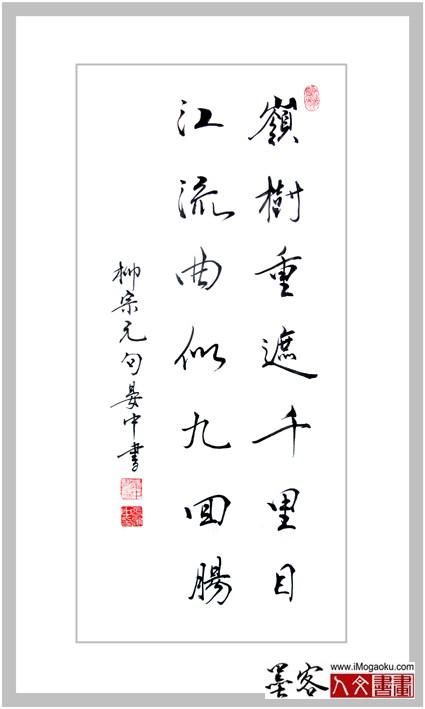 嶺樹重遮千里目
江流曲似九回腸
柳宗元句晏中書
墨客
www.iMogaoku.com
人文書畫